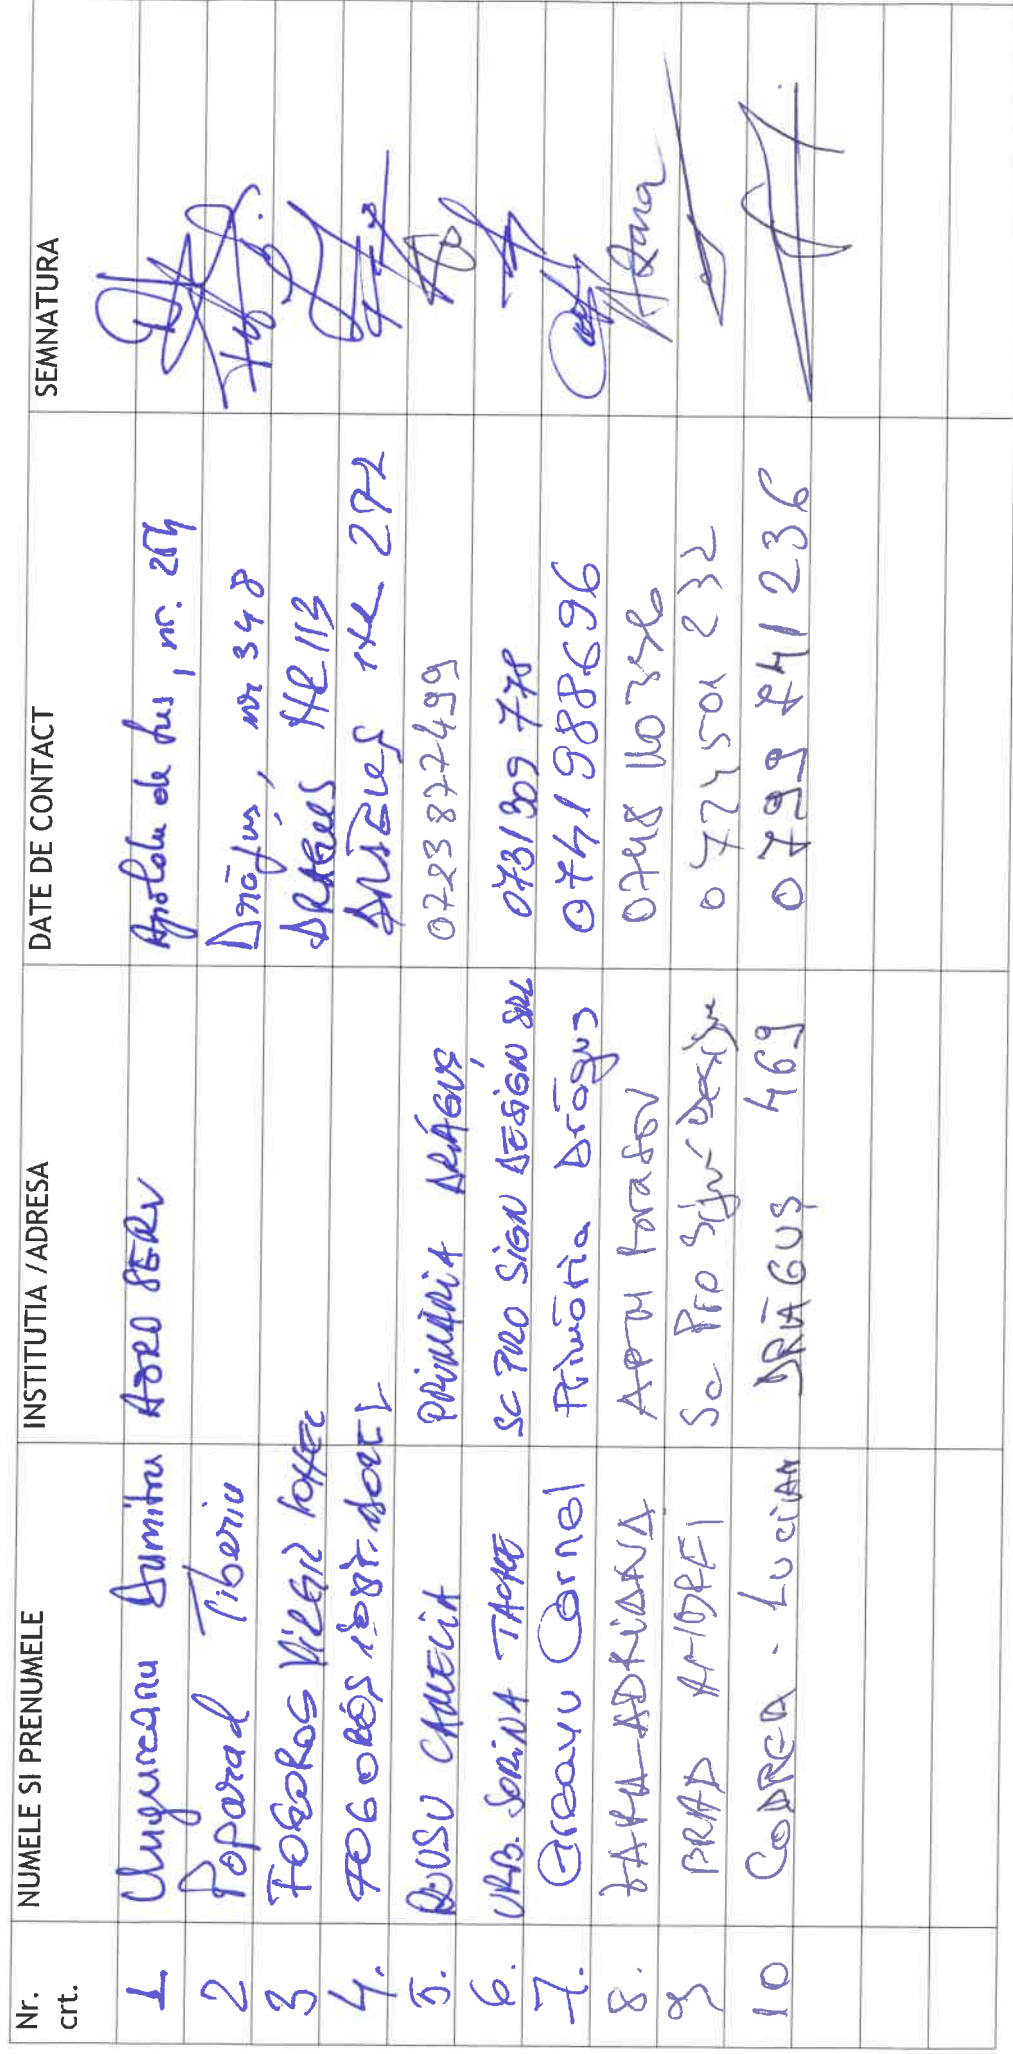 Nr. crt. NUMELE SI PRENUMELE INSTITUTIA /ADRESA DATE DE CONTACT SEMNATURA
1. Ungureanu Dumitru AGRO SERV de sus, nr.
2 Poparad Tiberiu Drăguș, nr 348
3 FOGOROS VIRGIL DRĂGUS NR 113
4. FOGOROȘ DRĂGUȘ NR 272
5. CAMELIA PRIMĂRIA DRĂGUȘ 0723877499
6. URB. SORINA TACHE SC PRO SIGN DESIGN SRL 0731309 778
7. Cornel Primăria Drăguș 0741988696
8. ADRIANA APM 0748
9 BRAD ANDREI Sc Pro Sign Design 0724501 232
10 CODREA - LUCIAN DRĂGUȘ 469 0799 741236